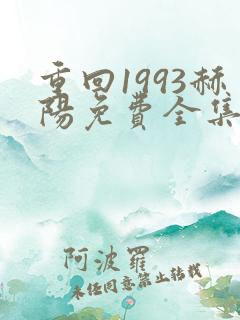 重回1993赫
陽免費全集
阿波羅
未经同意禁止转载